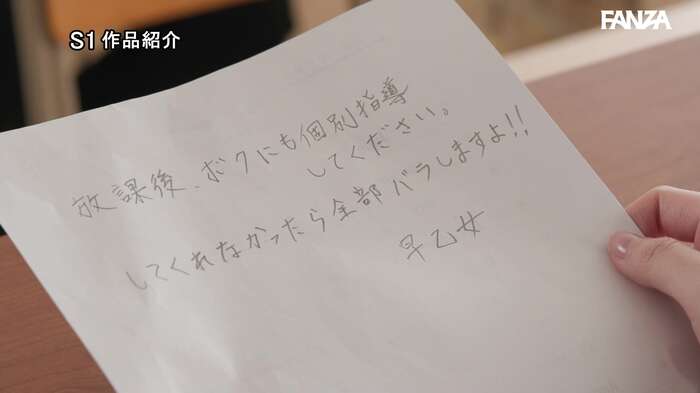 S1 作品紹介
FANZA
放課後、ボクにも個別指導
してください。
してくれなかったら全部バラしますよ!!
早乙女